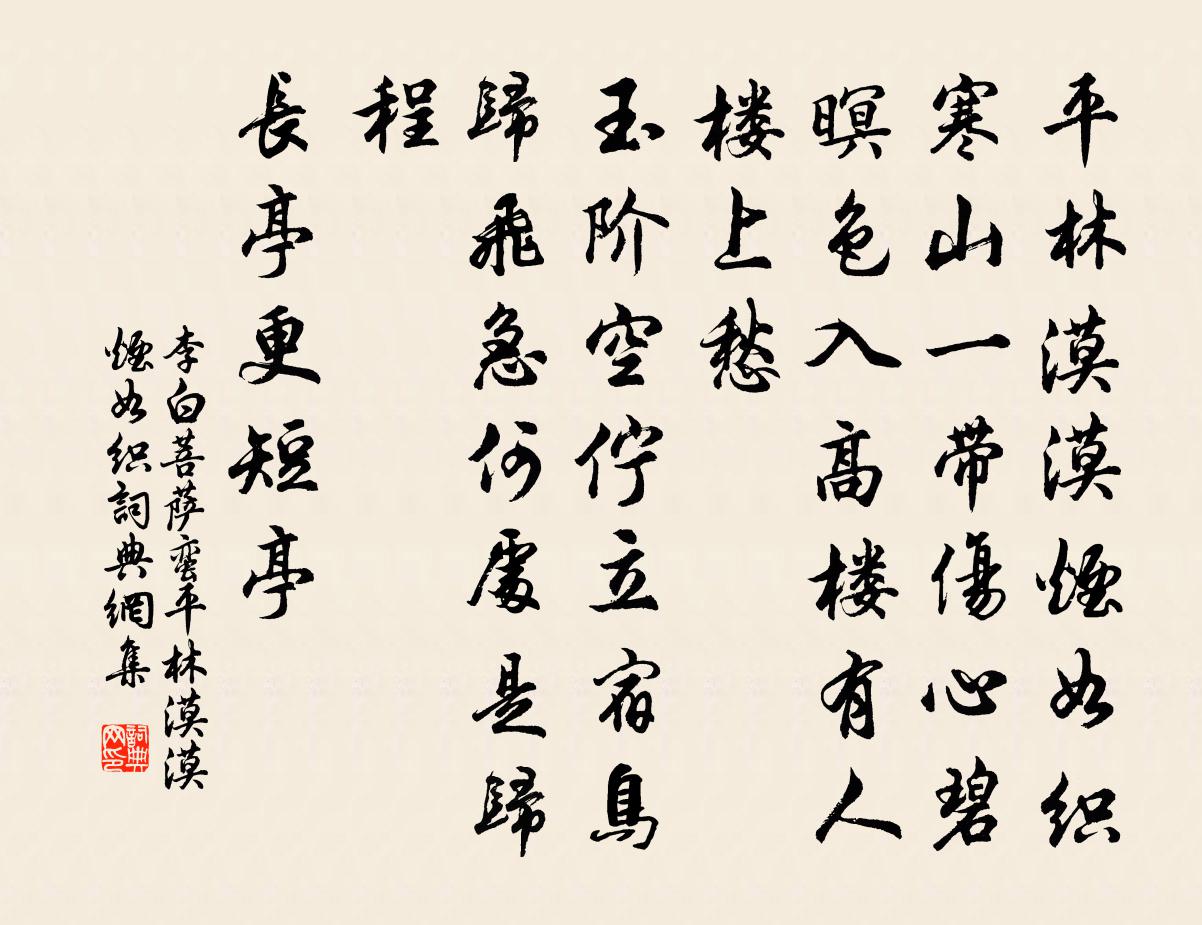 平林漠漠煙如织
寒山一带傷心碧
暝色入高楼有人
楼上愁
玉阶空佇立宿鳥
歸飛急何處是歸
程
長亭更短亭
李白菩萨蛮平林漠漠
煙如织詞典網集
詞典网印